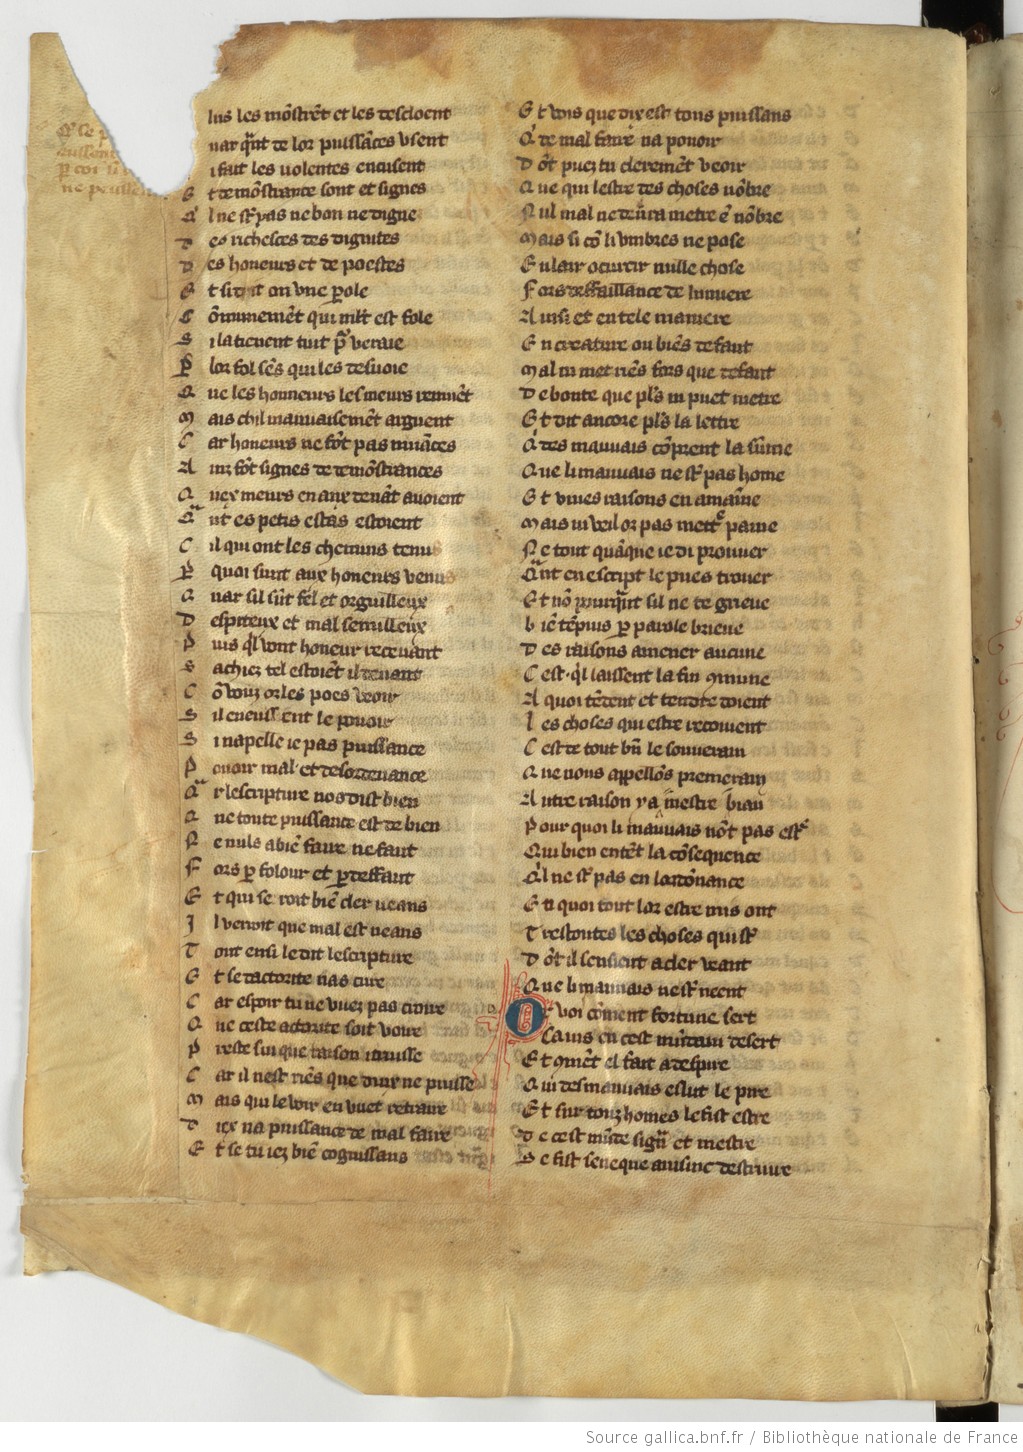 lus les mōstrēt et les descloent
uar qn̄t de lor puissāces vsent
i fait les uolentes encusent
E t demōstrance sont et signes
Q' l ne sūt pas ne bon ne digne
D es richesces des dignites
D es honeurs et de poestes
E t si dit on vne ꝑole
C ōmunemēt qui mlt est fole
S i la tienent tuit pͬ veraie
P lor fol sēs qui les desuoie
Q ue les honneurs les meurs remuēt
M ais chil mauuaisemēt arguent
C ar honeurs ne fōt pas muāces
A inz fōt signes de demōstrances
Q uex meurs en aux deuāt auoient
Qͣ nt es petis estas estoient
C il qui ont les chemins tenus
P quoi sunt aux honeurs venus
Q uar sil sūt fel et orguilleux
D espiteux et mal semilleux
P uis q'l vont honeur receuant
S achiez tel estoiēt il deuant
C ō vouz or les poes veoir
S il eneussent le pouoir
S i napelle ie pas puissance
P ouoir mal et desordenance
Qͣ r lescripture nos dist bien
Q ue toute puissance est de bien
N e nuls a biē faire ne faut
F ors ꝑ folour et ꝑ deffaut
E t qui seroit biē cler ueans
I l verroit que mal est neans
T out ensi le dit lescripture
E t se dactorite nas cure
C ar espoir tu ne vuez pas croire
Q ue ceste actorite soit voire
P reste sui que raison i truisse
C ar il nest riēs que diux ne puisse
M ais qui le voir en vuet retraire
D iex na puissance de mal faire
E t se tu iez biē cognissans
E t vois que diex est tous puissans
Q' de mal faire na pouoir
D ōt puez tu cleremēt veoir
Q ue qui lestre des choses nōbre
N ul mal ne denͬra metre ē nōbre
M ais si cō li vmbres ne pose
E n lair ocurcir nulle chose
F ors deffaillance de lumiere
A insi et en tele maniere
E n creature ou biēs defaut
M al ni met riēs fors que defaut
D e bonte que pl's ni puet metre
E t dit ancore pl's la lettre
Q' des mauuais cōprent la sūme
Q ue li mauuais ne sūt pas home
E t viues raisons en amaine
M ais ni veil or pas mettͤ paine
N e tout quāque ie di prouuer
Qͣ nt en escript le pues trouer
E t nō pourquāt sil ne te grieue
B iē te puis ꝑ parole brieue
D es raisons amener aucune
C est q'l laissent la fin ꝯmune
A quoi tēdent et tendre doient
L es choses qui estre recoiuent
C est de tout bn̄ le souuerain
Q ue nous appellōs premerain
A utre raison y a mestre biau
P our quoi li mauuais nōt pas estͤ
Q ui bien entēt la cōsequence
Q' l ne sūt pas en lordonance
E n quoi tout lor estre mis ont
T restoutes les choses qui sūt
D ōt il sensient a cler veant
Q ue li mauuais ne sūt neent
O r voi cōment fortune sert
Ca ius en cest mōdain desert
E t ꝯmēt el fait a despire
Q ui des mauuais eslut le pire
E t sur touz homes le fist estre
D e cest mōde signͬ et mestre
S e fist seneque ainsinc destruire